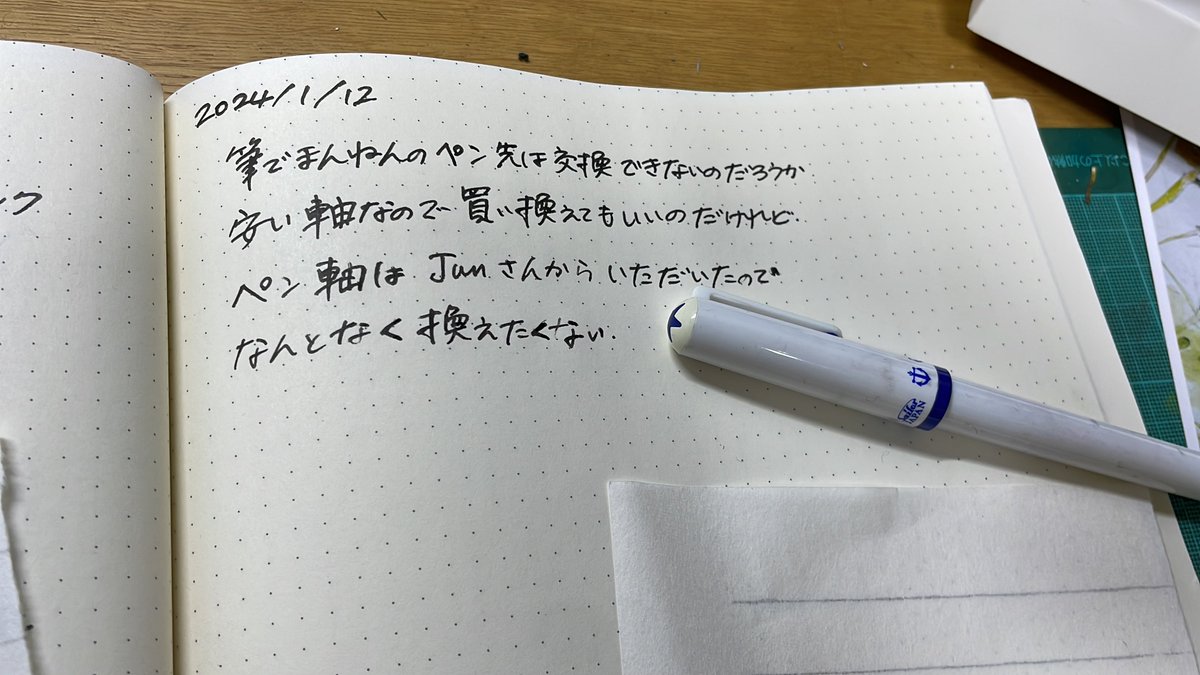 2024/1/12
筆でまんねんのペン先は交換できないのだろうか
安い軸なので買い換えてもいいのだけれど.
ペン軸は Junさんからいただいたので
なんとなく換えたくない.
sailor
JAPAN